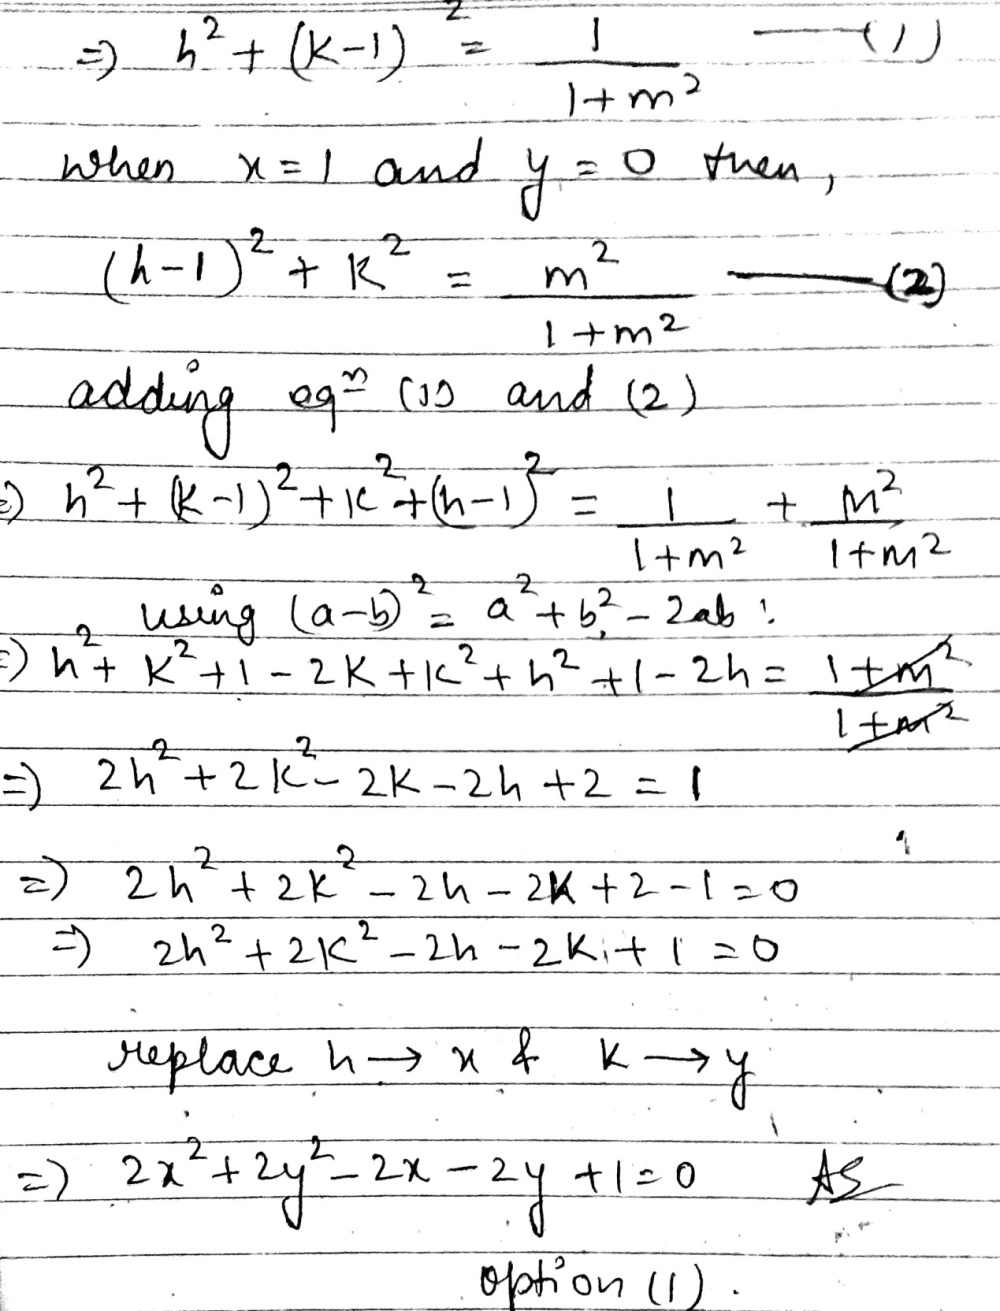 =) h² + (k-1)² = 1/(1+m²) —(1)
when x = 1 and y = 0 then,
(h-1)² + k² = m²/(1+m²) —(2)
adding eqⁿ (1) and (2)
=) h² + (k-1)² + k² + (h-1)² = 1/(1+m²) + m²/(1+m²)
using (a-b)² = a² + b² - 2ab :
=) h² + k² + 1 - 2k + k² + h² + 1 - 2h = (1+m²)/(1+m²)
=) 2h² + 2k² - 2k - 2h + 2 = 1
=) 2h² + 2k² - 2h - 2k + 2 - 1 = 0
=) 2h² + 2k² - 2h - 2k + 1 = 0
replace h → x & k → y
=) 2x² + 2y² - 2x - 2y + 1 = 0
option (1) .